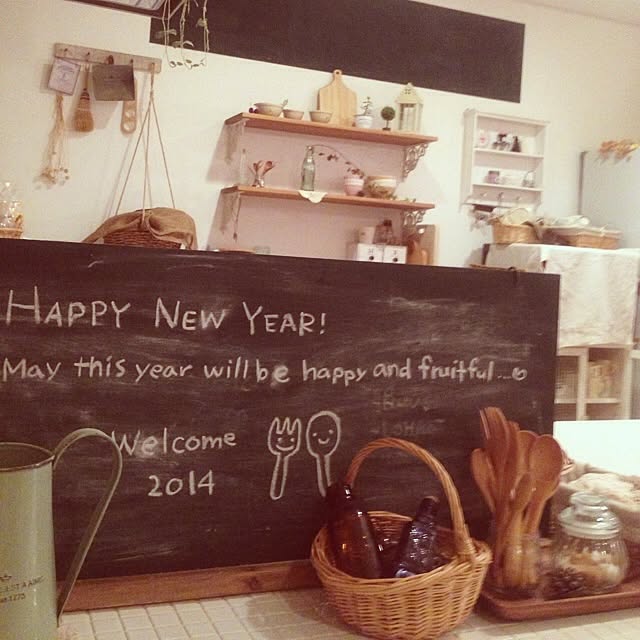 HAPPY NEW YEAR!
May this year will be happy and fruitful...
Welcome
2014